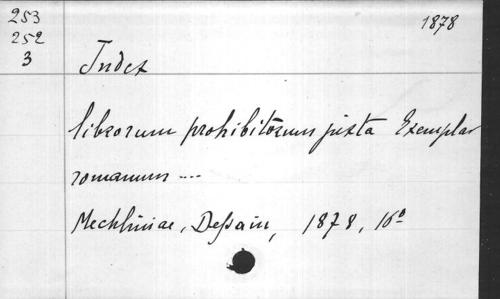 253
252
3
1878
Index
librorum prohibitorum juxta Exemplar
romanum ....
Mechliniae, Dessain, 1878, 16º